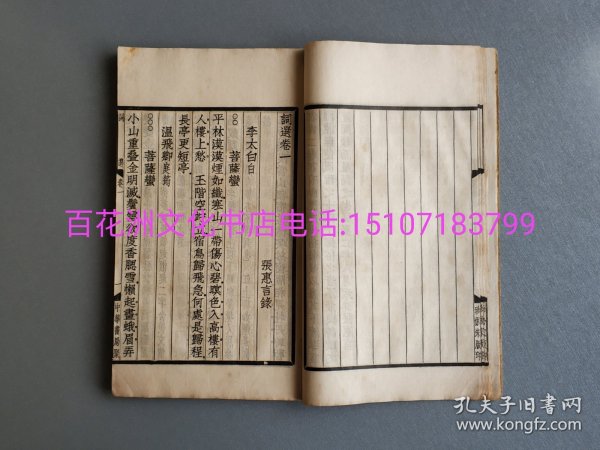 詞選卷一
張惠言錄
李太白白
菩薩蠻
平林漠漠煙如織寒山一帶傷心碧暝色入高樓有
人樓上愁 玉階空 宿鳥歸飛急何處是歸程
長亭更短亭
溫飛卿庭筠
菩薩蠻
小山重疊金明滅鬢 度香腮雪懶起畫蛾眉弄
百花洲文化书店电话:15107183799
孔夫子旧书网
www.kongfz.com